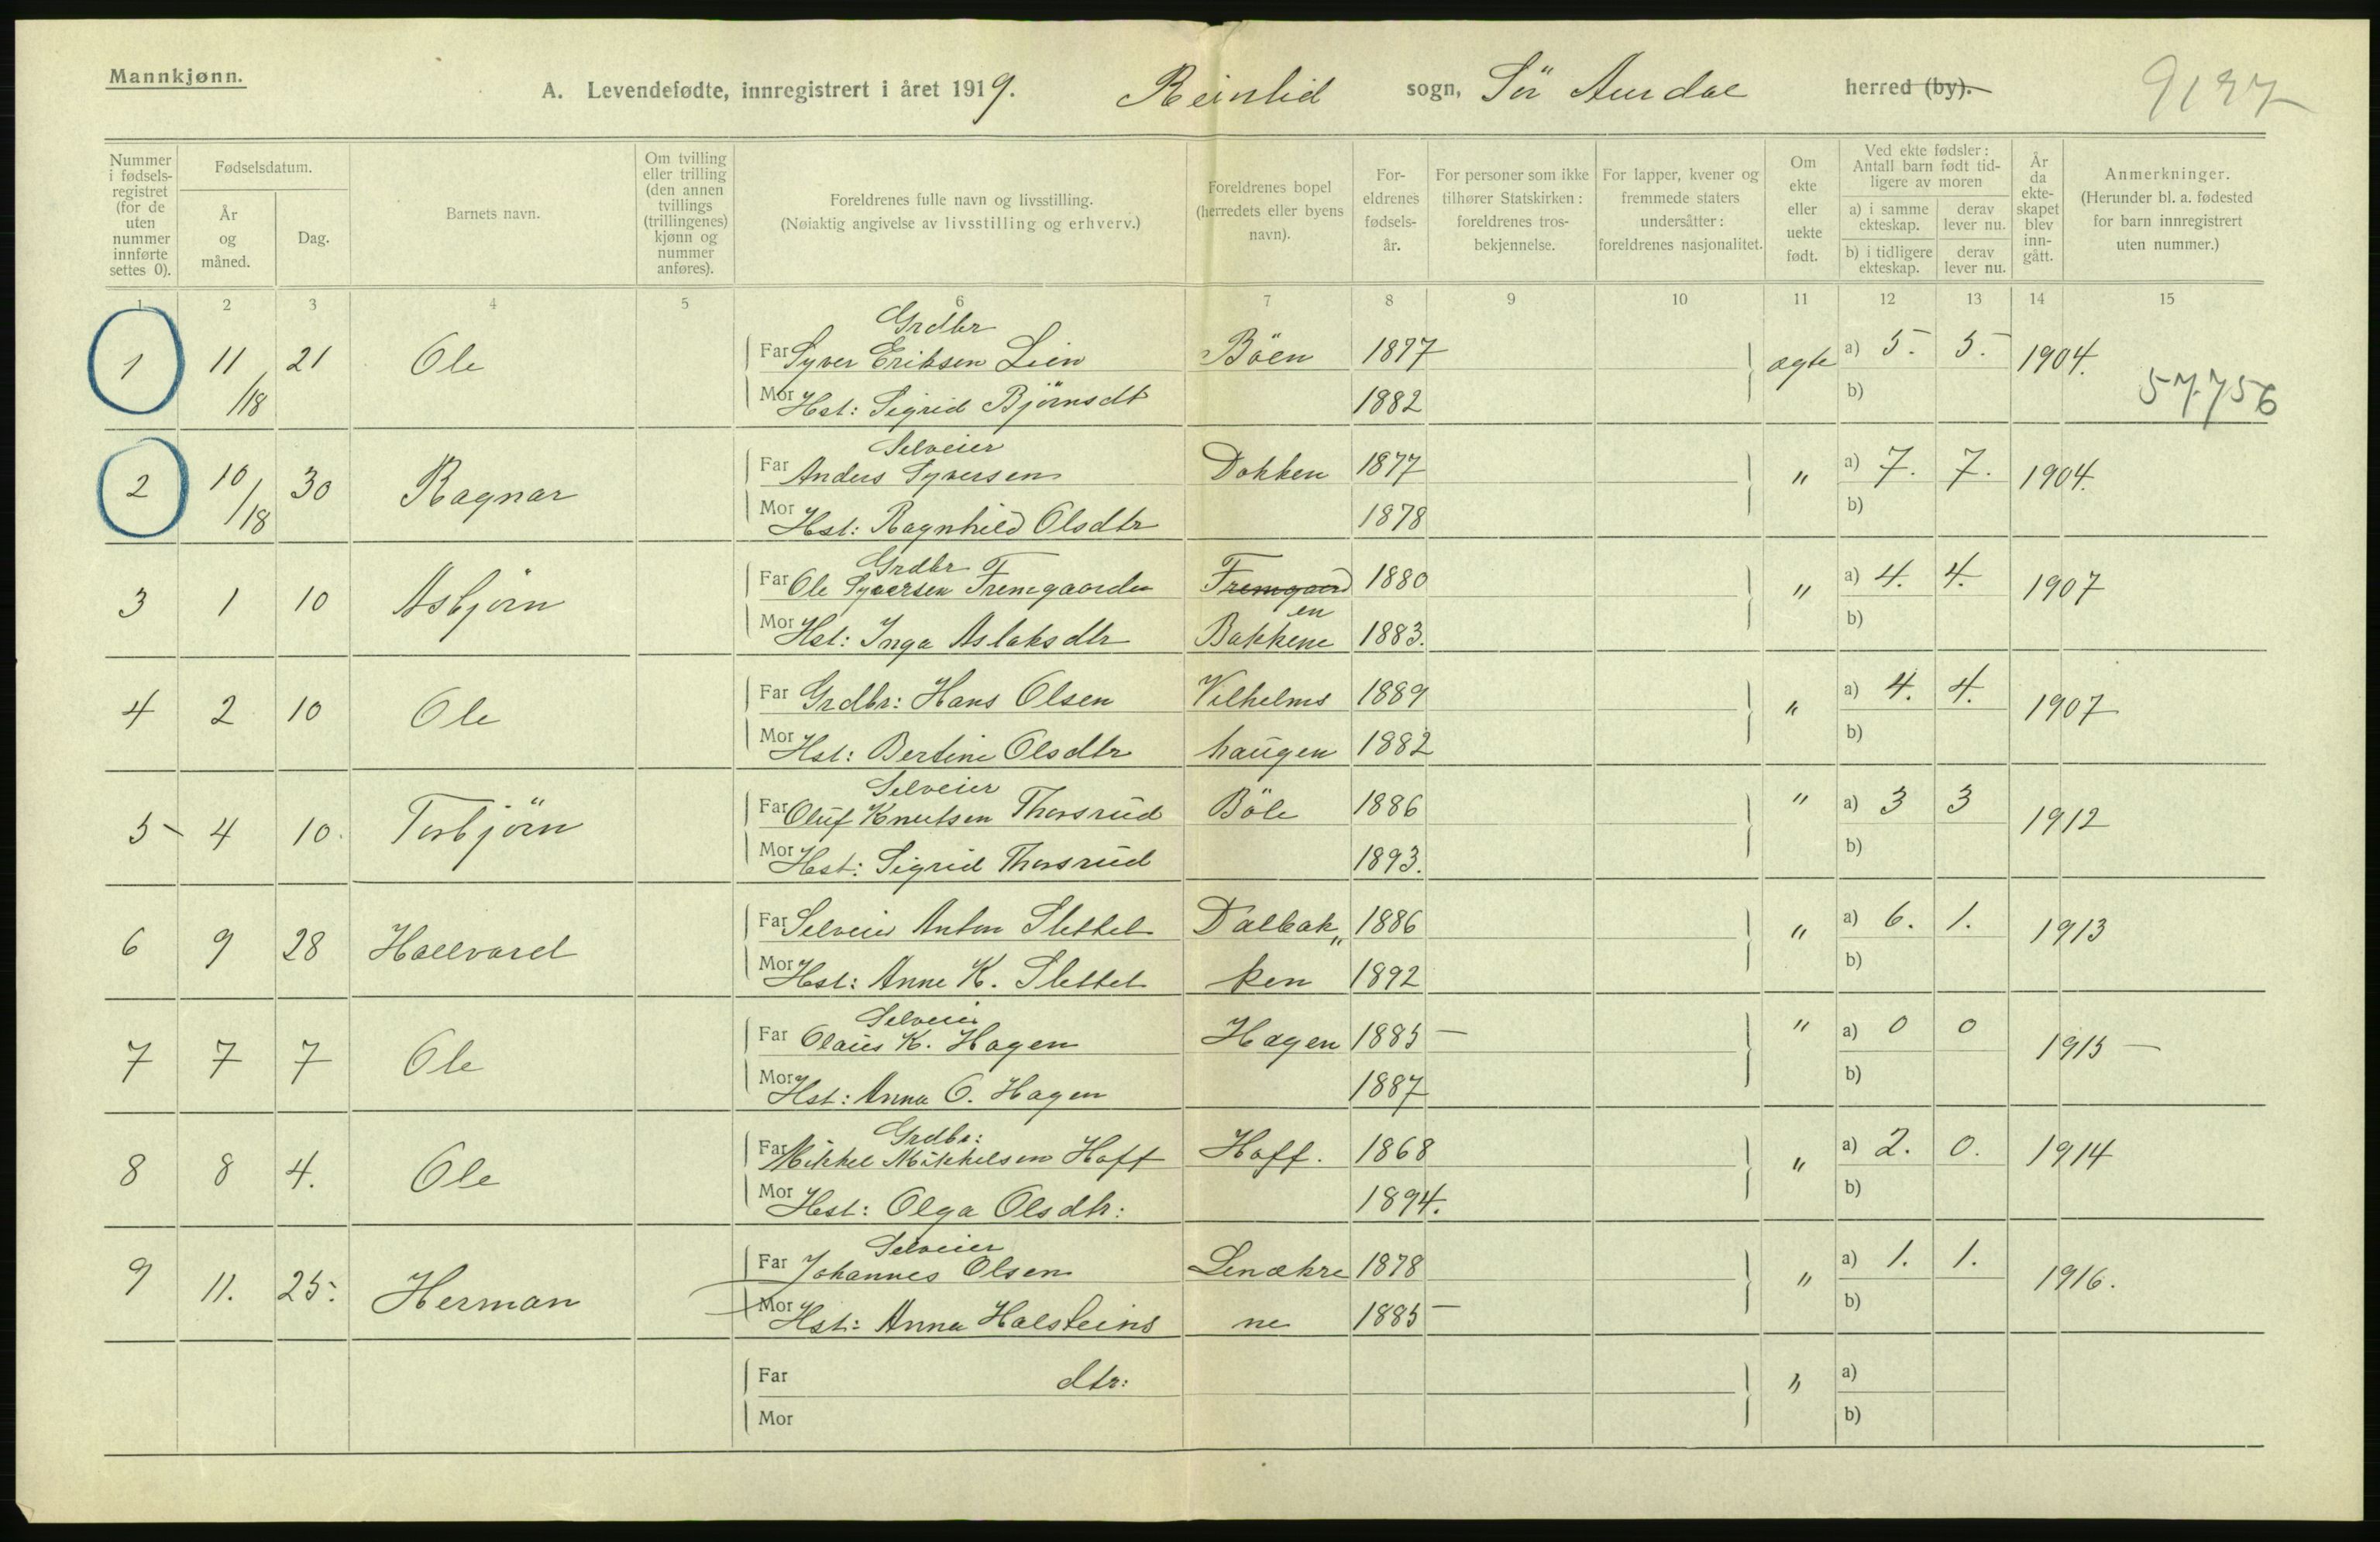 Mannkjønn.
A. Levendefødte, innregistrert i året 1919. Reinlid sogn, Sör Aurdal herred (by).
9137
Nummer i fødselsregistret (for de uten nummer innførte settes 0).
Fødselsdatum.
År og måned.
Dag.
Barnets navn.
Om tvilling eller trilling (den annen tvillings (trillingenes) kjønn og nummer anføres).
Foreldrenes fulle navn og livsstilling.
(Nøiaktig angivelse av livsstilling og erhverv.)
Foreldrenes bopel (herredets eller byens navn).
Foreldrenes fødselsår.
For personer som ikke tilhører Statskirken: foreldrenes trosbekjennelse.
For lapper, kvener og fremmede staters undersåtter: foreldrenes nasjonalitet.
Om ekte eller uekte født.
Ved ekte fødsler: Antall barn født tidligere av moren
a) i samme ekteskap. derav lever nu.
b) i tidligere ekteskap. derav lever nu.
År da ekteskapet blev inngått.
Anmerkninger.
(Herunder bl. a. fødested for barn innregistrert uten nummer.)
1 2 3 4 5 6 7 8 9 10 11 12 13 14 15
Grdbr
1 11/18 21 Ole Far Syver Eriksen Lien Böen 1877 ægte a) 5. 5. 1904.
Mor Hst: Sigrid Björnsdt 1882 b) 57.756
Selveier
2 10/18 30 Ragnar Far Anders Syversen Dokken 1877 " a) 7. 7. 1904.
Mor Hst: Ragnhild Olsdtr 1878 b)
Grdbr
3 1 10 Asbjörn Far Ole Syversen Fremgaarden Fremgaard 1880 " a) 4. 4. 1907
en
Mor Hst: Inga Aslaksdtr Bakkene 1883. b)
4 2 10 Ole Far Grdbr: Hans Olsen Vilhelms 1889 " a) 4. 4. 1907
Mor Hst: Bertine Olsdtr haugen 1882 b)
Selveier
5 4 10. Torbjörn Far Oluf Knutsen Thorsrud Böle 1886 " a) 3 3 1912
Mor Hst: Sigrid Thorsrud 1893. b)
6 9 28 Hallvard Far Selveier Anton Slettet Dalbak„ 1886 " a) 6. 1. 1913
Mor Hst: Anne K. Slettet ken 1892 b)
Selveier
7 7 7 Ole Far Olaus K. Hagen Hagen 1885 " a) 0 0 1915
Mor Hst: Anna O. Hagen 1887 b)
Grdbr:
8 8 4. Ole Far Mikkel Mikkelsen Hoff Hoff. 1868 " a) 2. 0. 1914
Mor Hst: Olga Olsdtr: 1894. b)
Selveier
9 11. 25. Herman Far Johannes Olsen Lenækre 1878 " a) 1. 1. 1916.
Mor Hst: Anna Halsteins ne 1885 b)
Far dtr: " a)
Mor b)